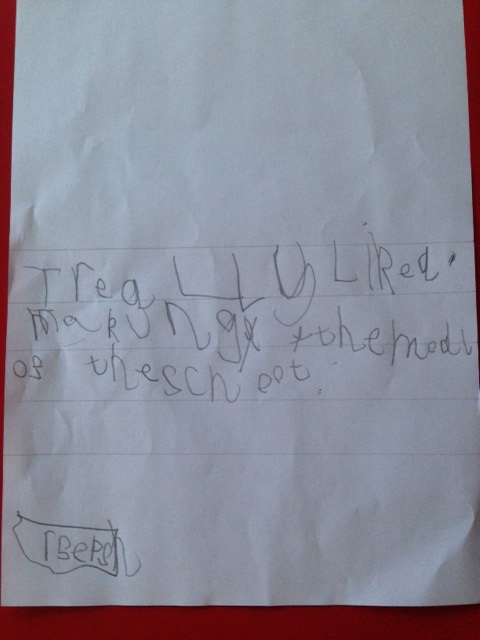 I rea LLy LIked.
making the modl
os theschoot.